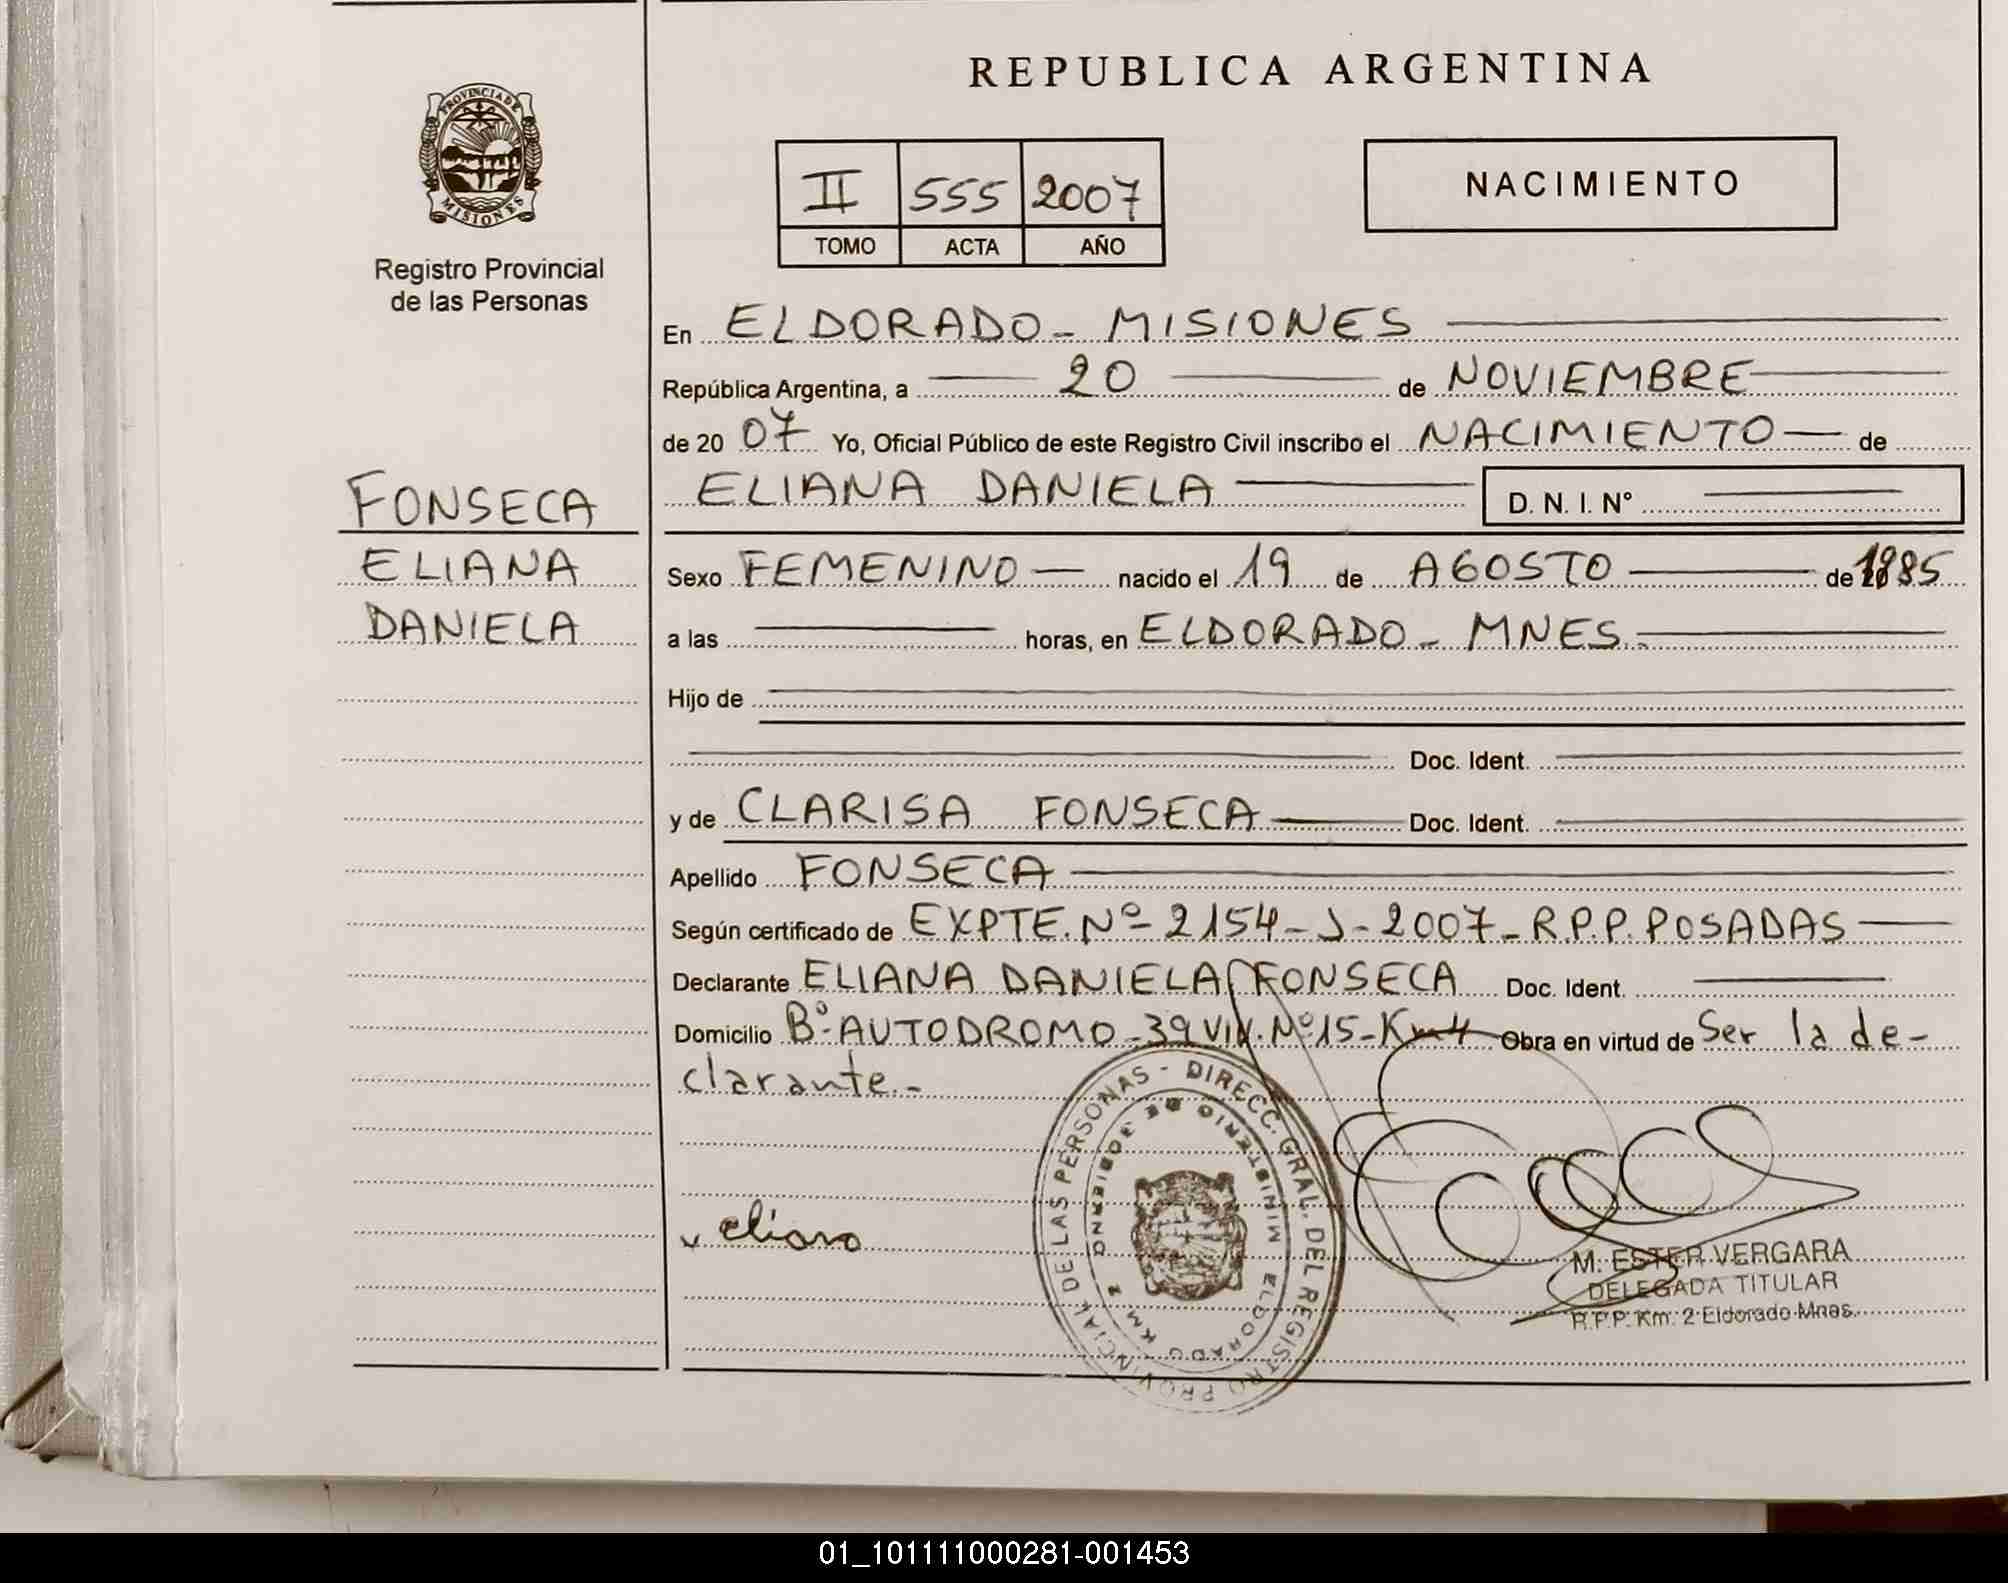 REPUBLICA ARGENTINA
PROVINCIA DE
MISIONES
Registro Provincial
de las Personas
II 555 2007
TOMO ACTA AÑO
NACIMIENTO
En ELDORADO - MISIONES
República Argentina, a 20 de NOVIEMBRE
de 20 07 Yo, Oficial Público de este Registro Civil inscribo el NACIMIENTO de
ELIANA DANIELA D. N. I. N°
FONSECA
ELIANA
DANIELA
Sexo FEMENINO nacido el 19 de AGOSTO de 1985
a las horas, en ELDORADO - MNES.
Hijo de
Doc. Ident.
y de CLARISA FONSECA Doc. Ident.
Apellido FONSECA
Según certificado de EXPTE. Nº 2154 - J - 2007 - R.P.P. POSADAS
Declarante ELIANA DANIELA FONSECA Doc. Ident.
Domicilio Bº AUTODROMO - 39 VIV. Nº 15 - Km 4 Obra en virtud de Ser la de-
clarante.-
eliana
DIRECC. GRAL. DEL REGISTRO PROVINCIAL DE LAS PERSONAS -
MINISTERIO DE GOBIERNO
ELDORADO KM 2
M. ESTER VERGARA
DELEGADA TITULAR
R.P.P. Km. 2 Eldorado Mnes.
01_101111000281-001453